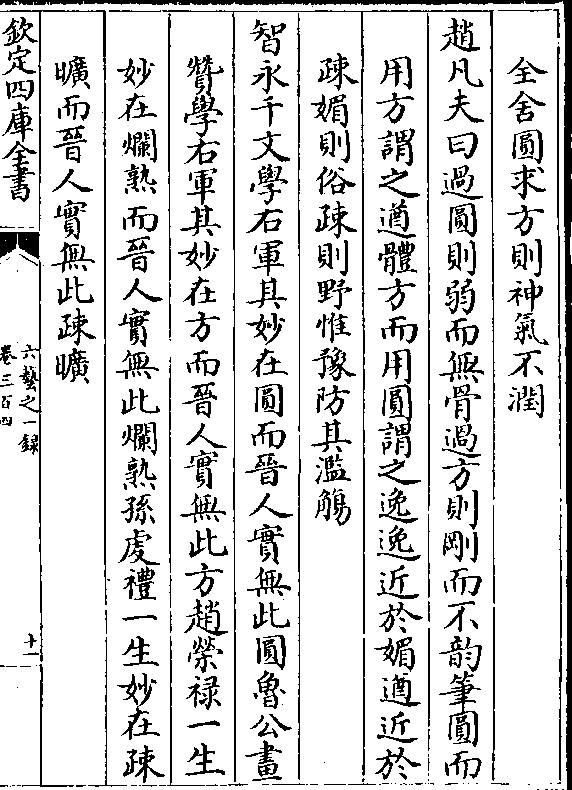 全舍圓求方則神氣不潤
趙凡夫曰過圓則弱而無骨過方則剛而不韵筆圓而
用方謂之遒體方而用圓謂之逸逸近於媚遒近於
疎媚則俗疎則野惟豫防其濫觴
智永千文學右軍其妙在圓而晉人實無此圓魯公畫
贊學右軍其妙在方而晉人實無此方趙榮禄一生
妙在爛熟而晉人實無此爛熟孫虔禮一生妙在疎
曠而晉人實無此疎曠
欽定四庫全書
六藝之一録
卷三百四
十一